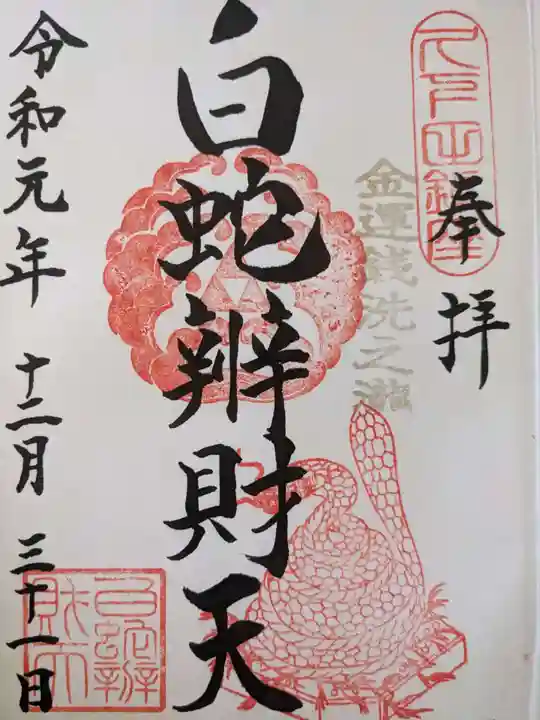 奉拝
金運銭洗之瀧
白蛇辨財天
令和元年 十二月 三十一日
白蛇辨
財天